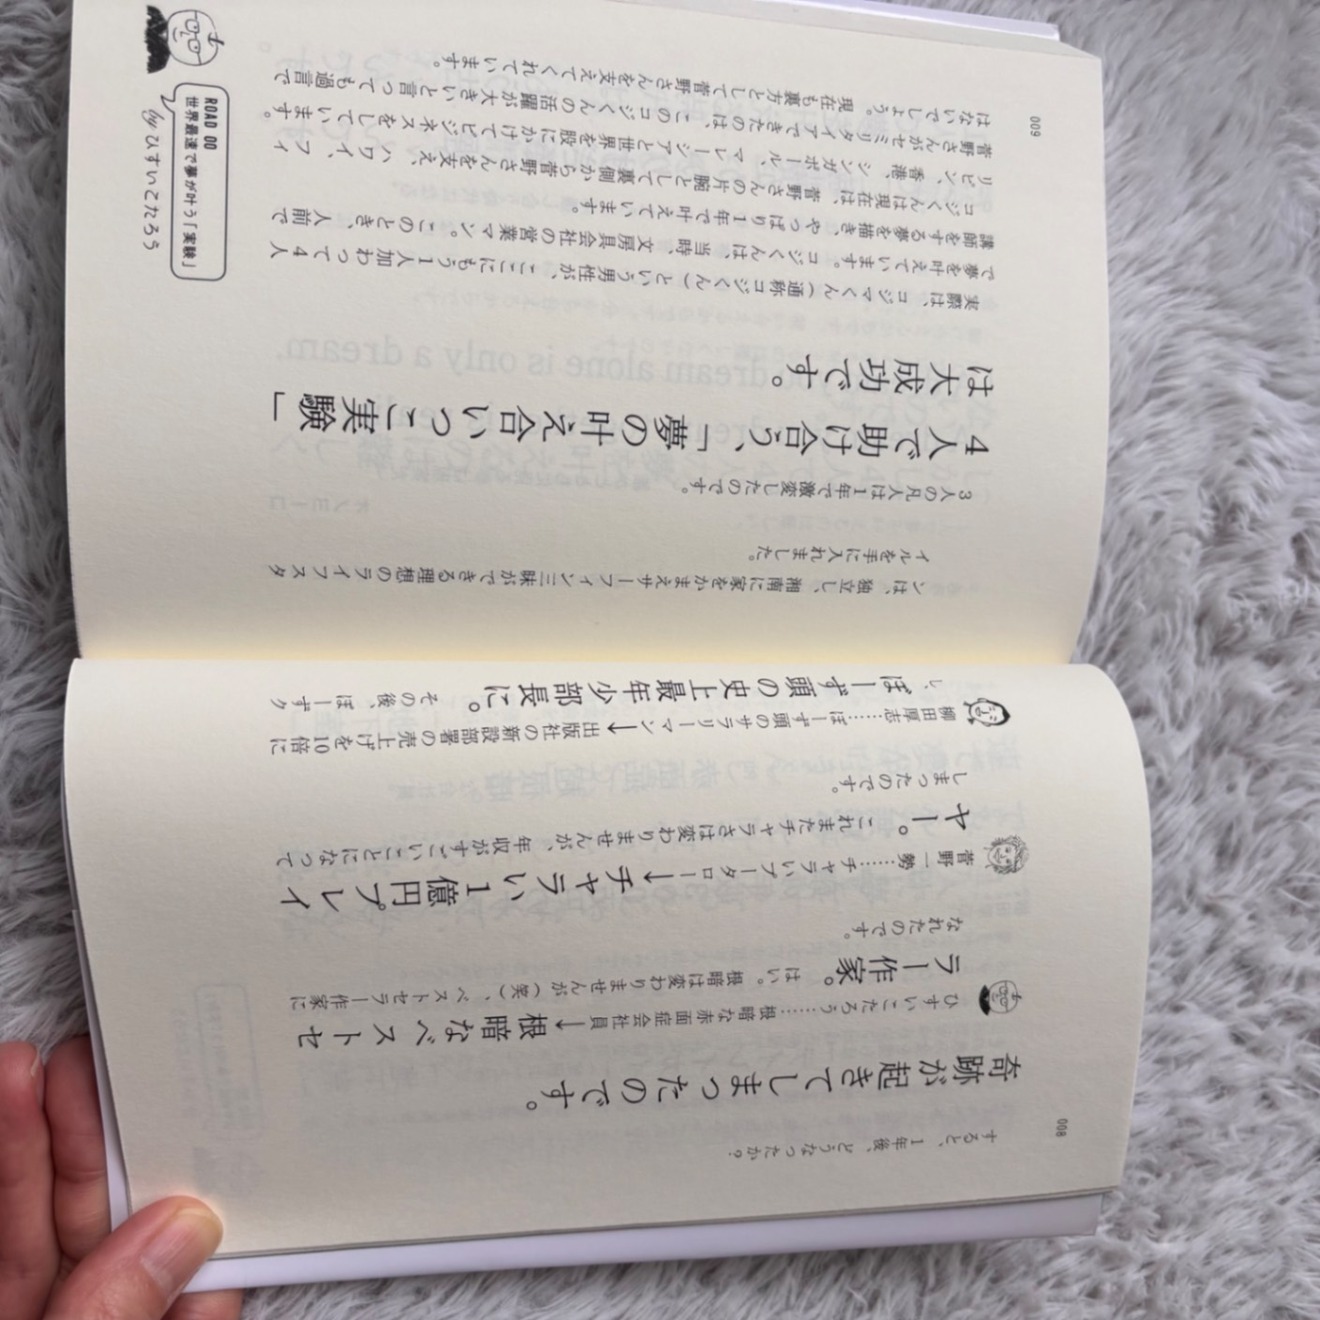 008
すると、1年後、どうなったか?
奇跡が起きてしまったのです。
ひすいこたろう……根暗な赤面症会社員→根暗なベストセ
ラー作家。はい。根暗は変わりませんが(笑)、ベストセラー作家に
なれたのです。
菅野一勢……チャラいプータロー→チャラい1億円プレイ
ヤー。これまたチャラさは変わりませんが、年収がすごいことになって
しまったのです。
柳田厚志……ぼーず頭のサラリーマン→出版社の新設部署の売上げを10倍に
し、ぼーず頭の史上最年少部長に。その後、ぼーずク
ンは、独立し、湘南に家をかまえサーフィン三昧ができる理想のライフスタ
イルを手に入れました。
3人の凡人は1年で激変したのです。
4人で助け合う、「夢の叶え合いっこ実験」
は大成功です。
実際は、コジマくん(通称コジくん)という男性が、ここにもう1人加わって4人
で夢を叶えています。コジくんは、当時、文房具会社の営業マン。このとき、人前で
講師をする夢を描き、やっぱり1年で叶えています。
コジくんは現在は、菅野さんの片腕として裏側から菅野さんを支え、ハワイ、フィ
リピン、香港、シンガポール、マレーシアと世界を股にかけてビジネスをしています。
菅野さんがセミリタイアできたのは、このコジくんの活躍が大きいと言っても過言で
はないでしょう。現在も裏方として菅野さんを支えてくれています。
009
ROAD 00
世界最速で夢が叶う「実験」
by ひすいこたろう